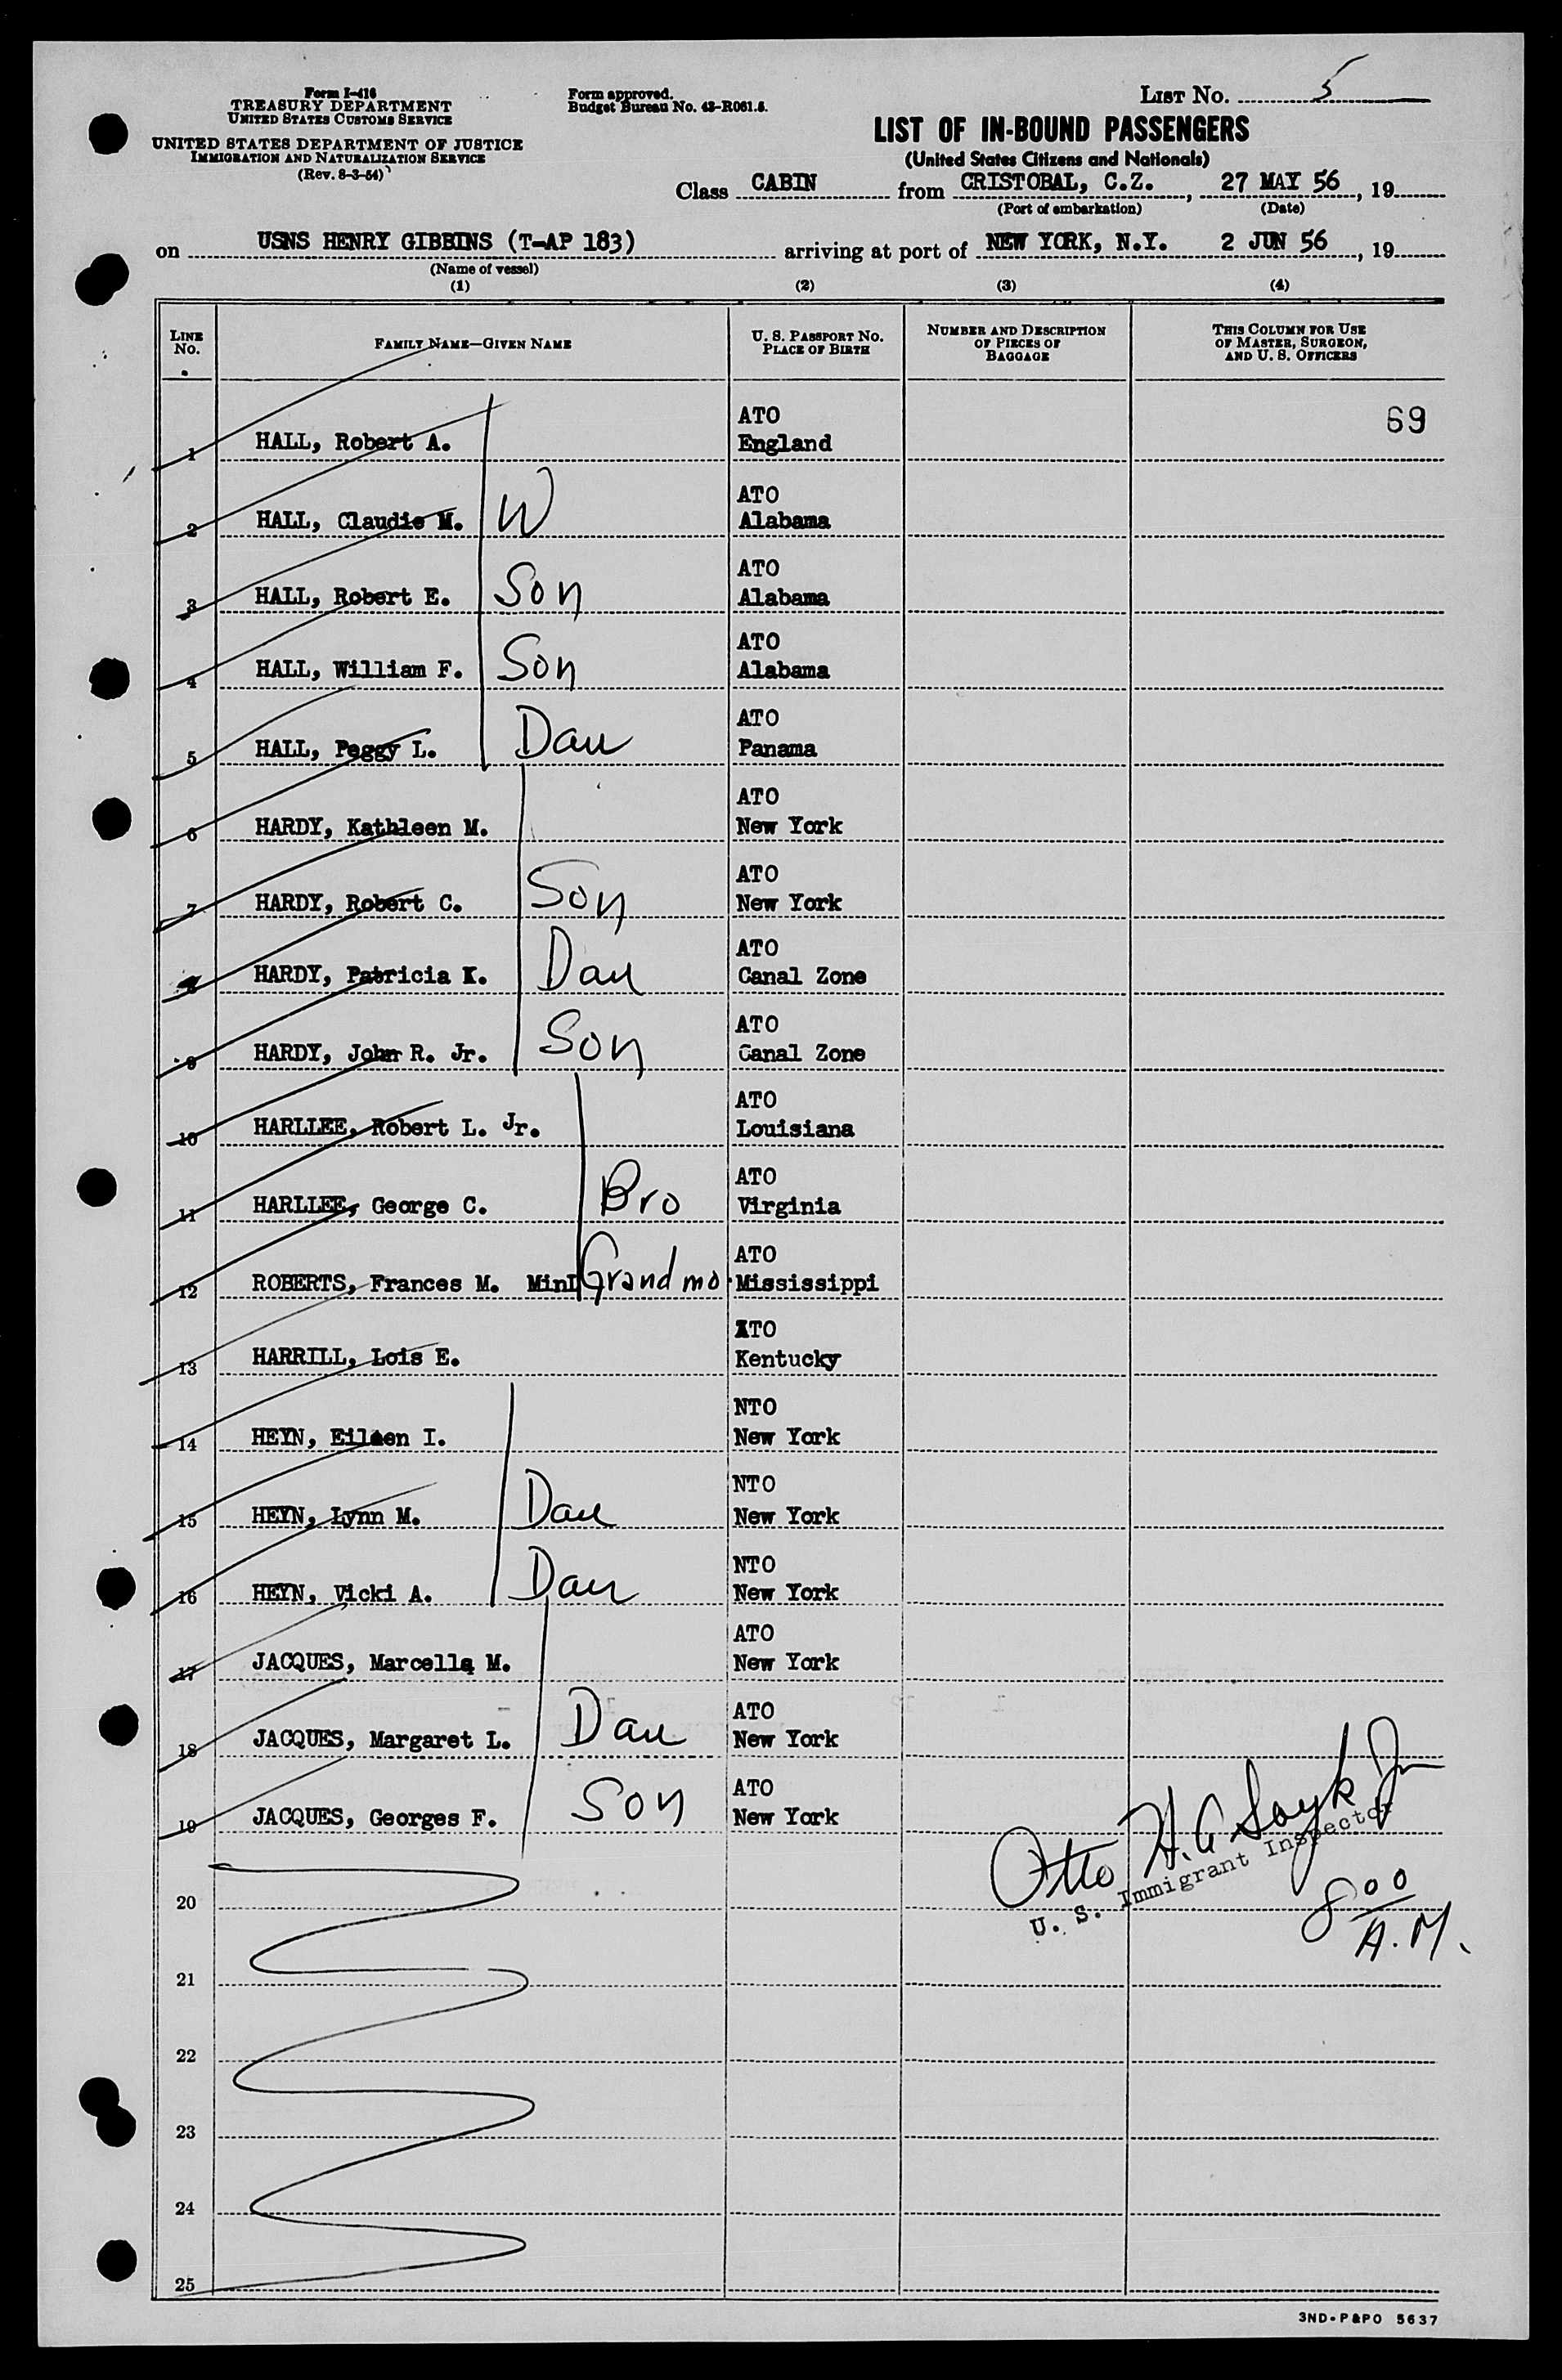 Form I-416
TREASURY DEPARTMENT
UNITED STATES CUSTOMS SERVICE
UNITED STATES DEPARTMENT OF JUSTICE
IMMIGRATION AND NATURALIZATION SERVICE
(Rev. 8-3-54)
Form approved.
Budget Bureau No. 43-R061.5.
LIST NO. 5
LIST OF IN-BOUND PASSENGERS
(United States Citizens and Nationals)
Class CABIN from CRISTOBAL, C.Z., 27 MAY 56, 19
(Port of embarkation) (Date)
on USNS HENRY GIBBINS (T-AP 183) arriving at port of NEW YORK, N.Y. 2 JUN 56, 19
(Name of vessel)
(1) (2) (3) (4)
LINE NO.
FAMILY NAME—GIVEN NAME
U. S. PASSPORT NO.
PLACE OF BIRTH
NUMBER AND DESCRIPTION
OF PIECES OF
BAGGAGE
THIS COLUMN FOR USE
OF MASTER, SURGEON,
AND U. S. OFFICERS
69
ATO
1 HALL, Robert A. England
ATO
2 HALL, Claudie M. W Alabama
ATO
3 HALL, Robert E. Son Alabama
ATO
4 HALL, William F. Son Alabama
ATO
5 HALL, Peggy L. Dau Panama
ATO
6 HARDY, Kathleen M. New York
ATO
7 HARDY, Robert C. Son New York
ATO
8 HARDY, Patricia K. Dau Canal Zone
ATO
9 HARDY, John R. Jr. Son Canal Zone
ATO
10 HARLLEE, Robert L. Jr. Louisiana
ATO
11 HARLLEE, George C. Bro Virginia
ATO
12 ROBERTS, Frances M. MinD Grandmo Mississippi
ATO
13 HARRILL, Lois E. Kentucky
NTO
14 HEYN, Eileen I. New York
NTO
15 HEYN, Lynn M. Dau New York
NTO
16 HEYN, Vicki A. Dau New York
ATO
17 JACQUES, Marcella M. New York
ATO
18 JACQUES, Margaret L. Dau New York
ATO
19 JACQUES, Georges F. Son New York
Otto H. A. Sayk Jr
U. S. Immigrant Inspector
20
8 00
A.M.
21
22
23
24
25
3ND-P&PO 5637